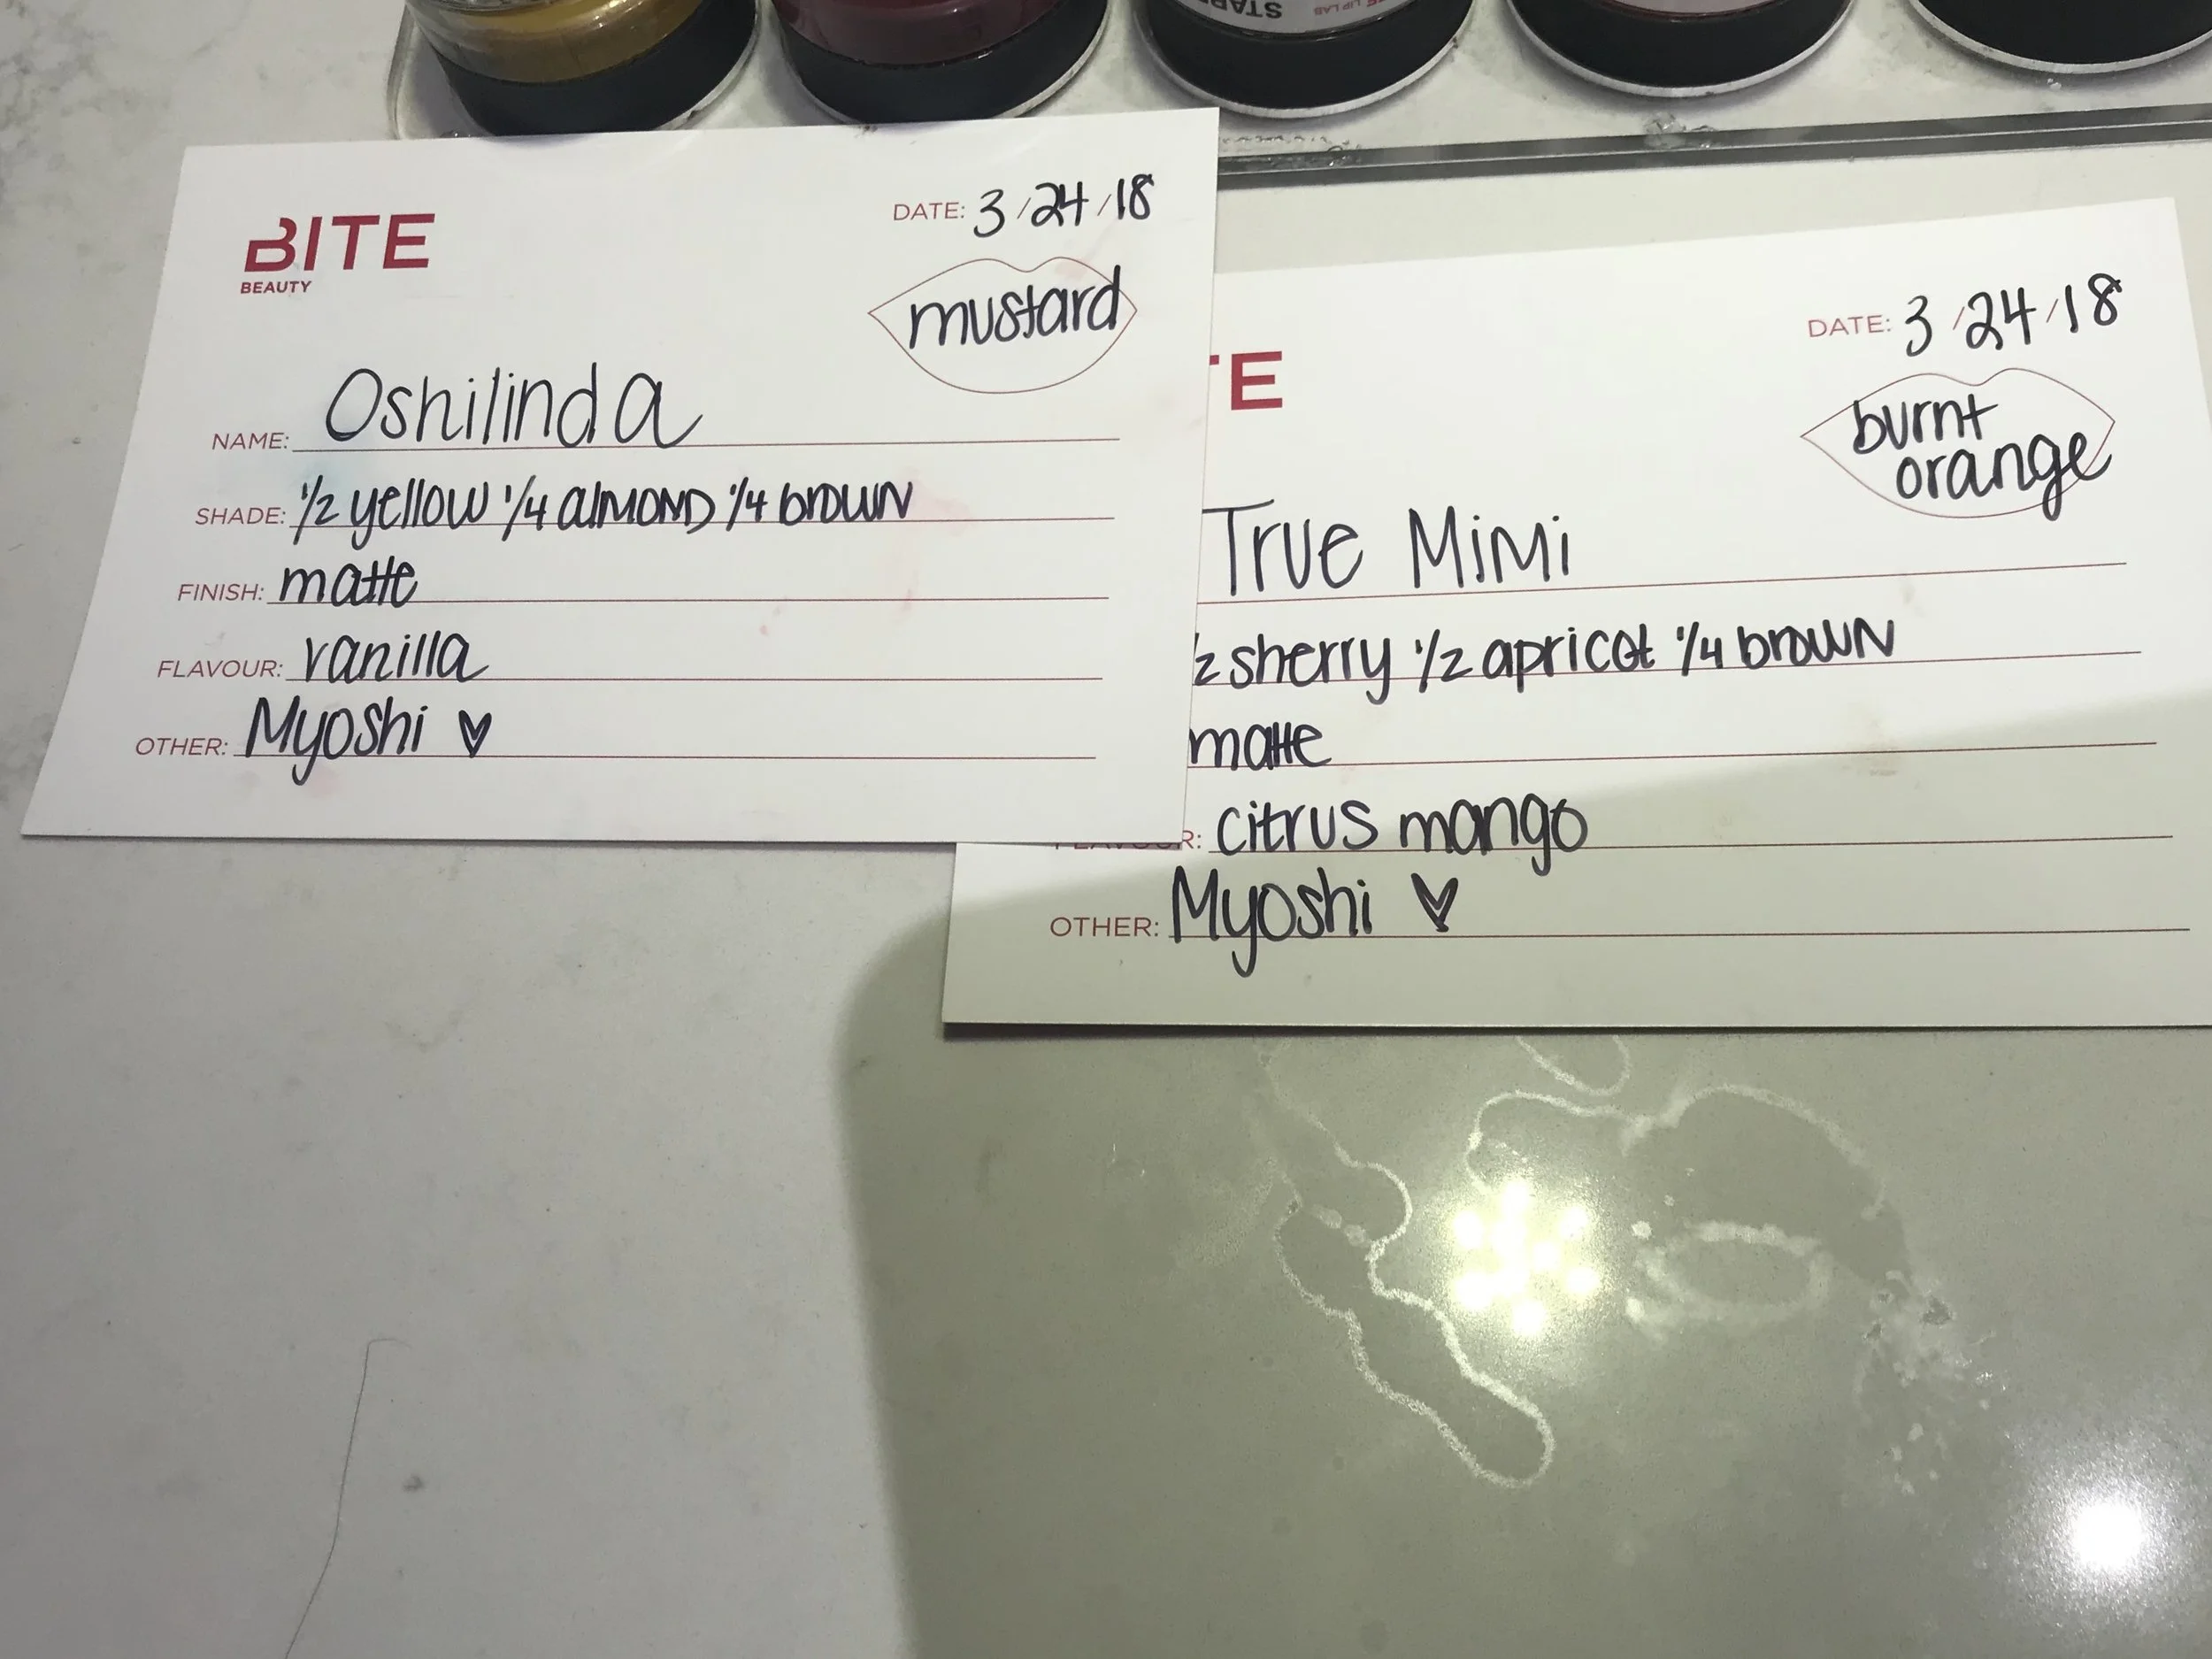 BITE
BEAUTY
DATE: 3/24/18
mustard
NAME: Oshilinda
SHADE: 1/2 yellow 1/4 almond 1/4 brown
FINISH: matte
FLAVOUR: vanilla
OTHER: Myoshi ♥
TE
DATE: 3/24/18
burnt
orange
True Mimi
/2 sherry 1/2 apricot 1/4 brown
matte
R: citrus mango
OTHER: Myoshi ♥